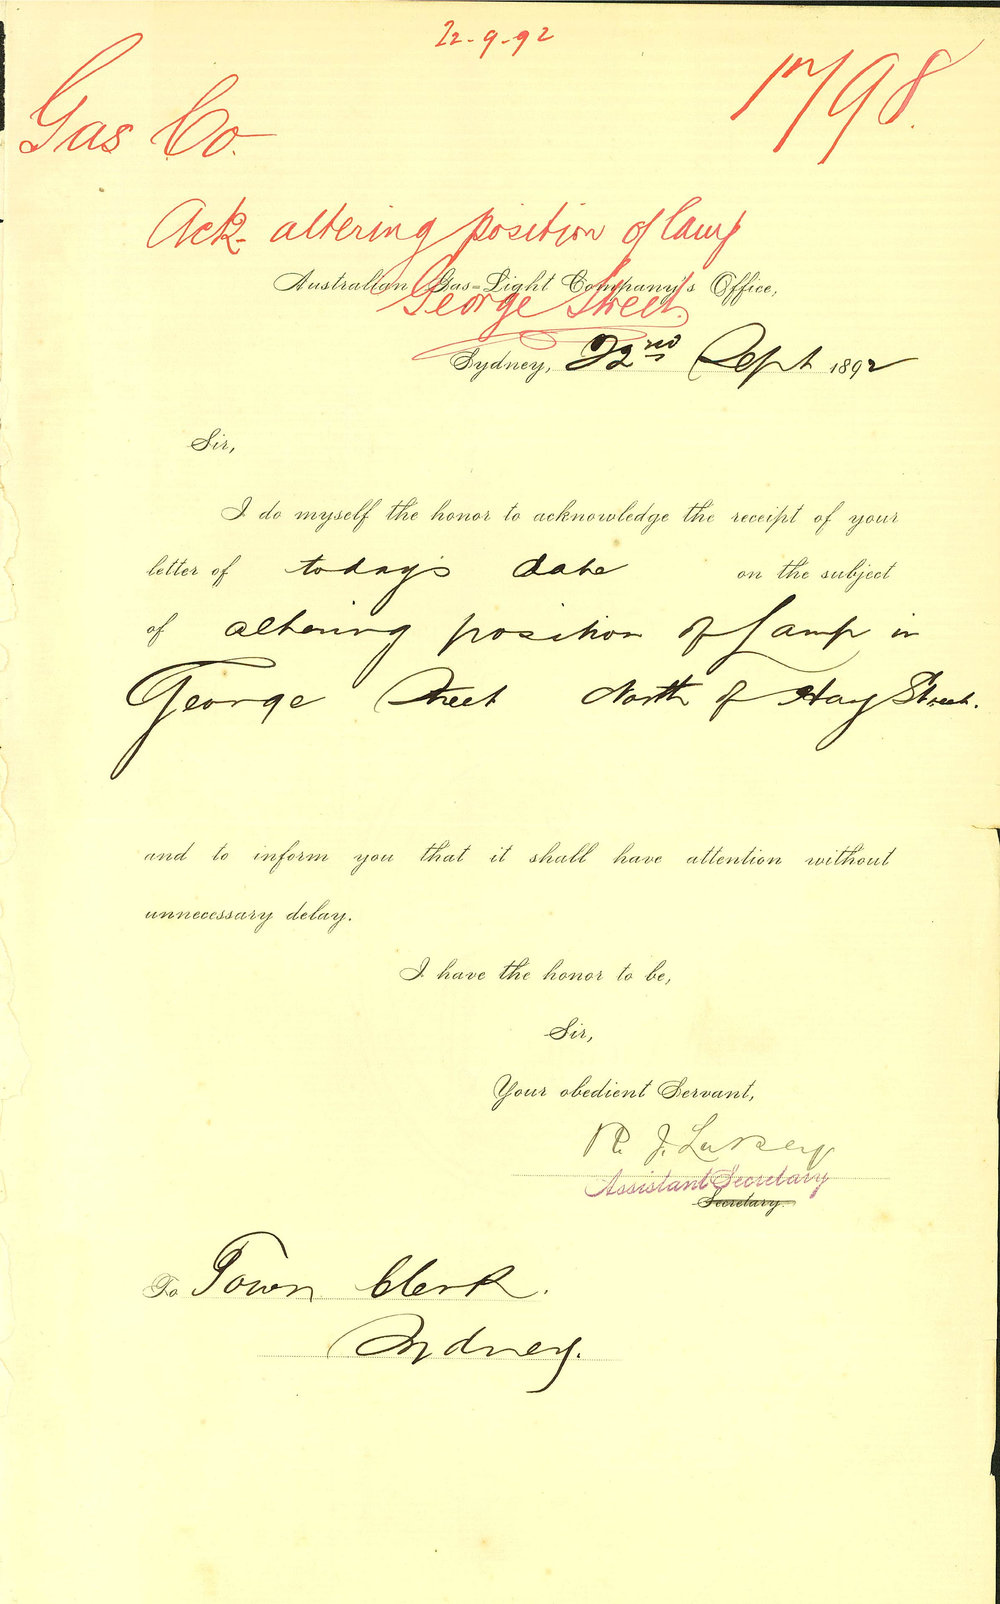 22-9-92
Gas Co. 1798.
Ack. altering position of lamp
Australian Gas-Light Company's Office,
George Street.
Sydney, 22nd Sept 1892
Sir,
I do myself the honor to acknowledge the receipt of your
letter of today's date on the subject
of altering position of Lamp in
George Street North of Hay Street.
and to inform you that it shall have attention without
unnecessary delay.
I have the honor to be,
Sir,
Your obedient Servant,
R. J.
Assistant Secretary
Secretary.
To Town Clerk.
Sydney.